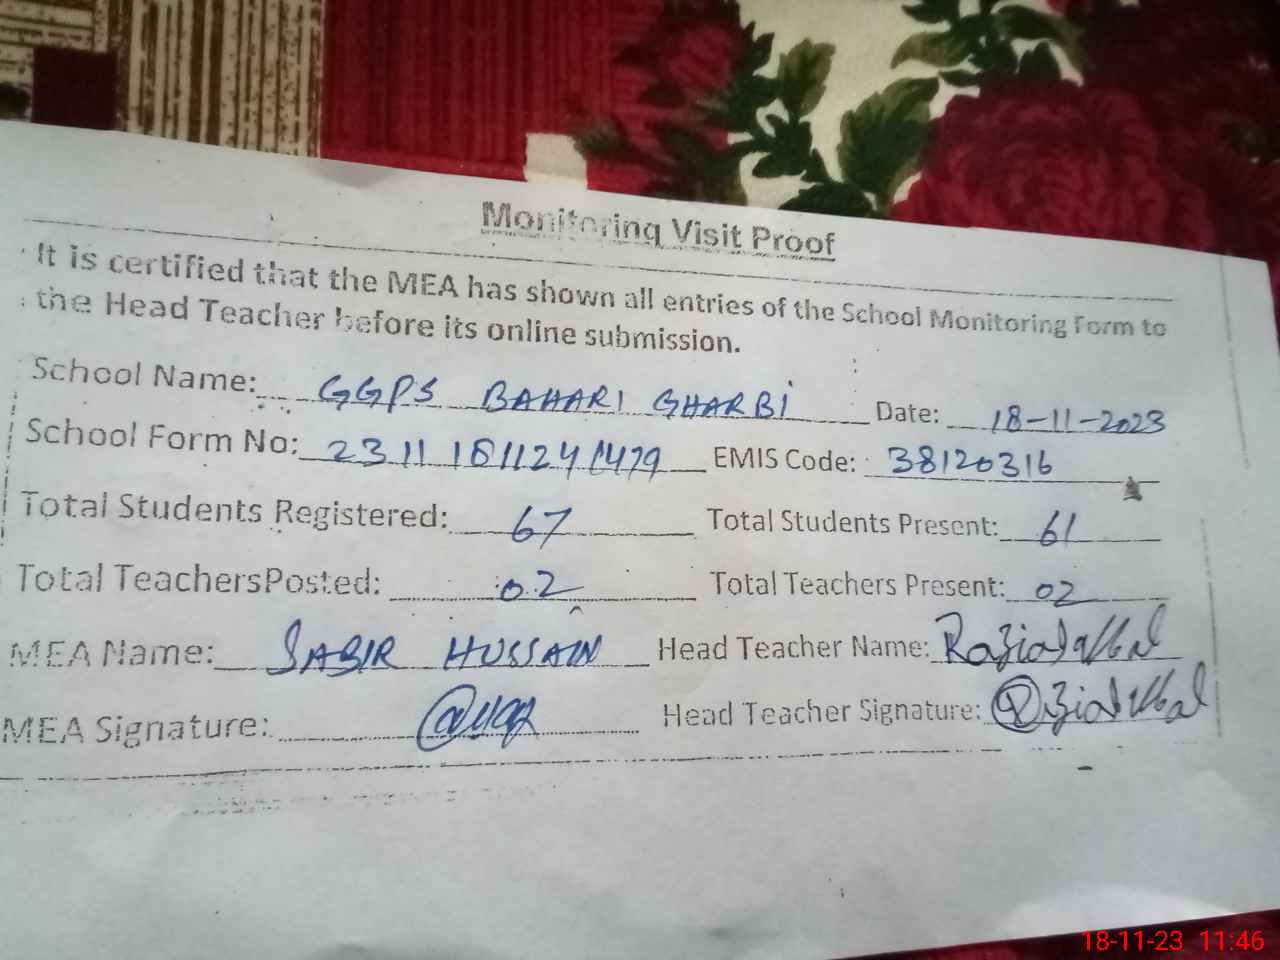 Monitoring Visit Proof
It is certified that the MEA has shown all entries of the School Monitoring Form to
the Head Teacher before its online submission.
School Name: GGPS BAHARI GHARBI Date: 18-11-2023
School Form No: 23111811241479 EMIS Code: 38120316
Total Students Registered: 67 Total Students Present: 61
Total TeachersPosted: 02 Total Teachers Present: 02
MEA Name: SABIR HUSSAIN Head Teacher Name: Razia Iqbal
MEA Signature: Head Teacher Signature: Razia Iqbal
18-11-23 11:46